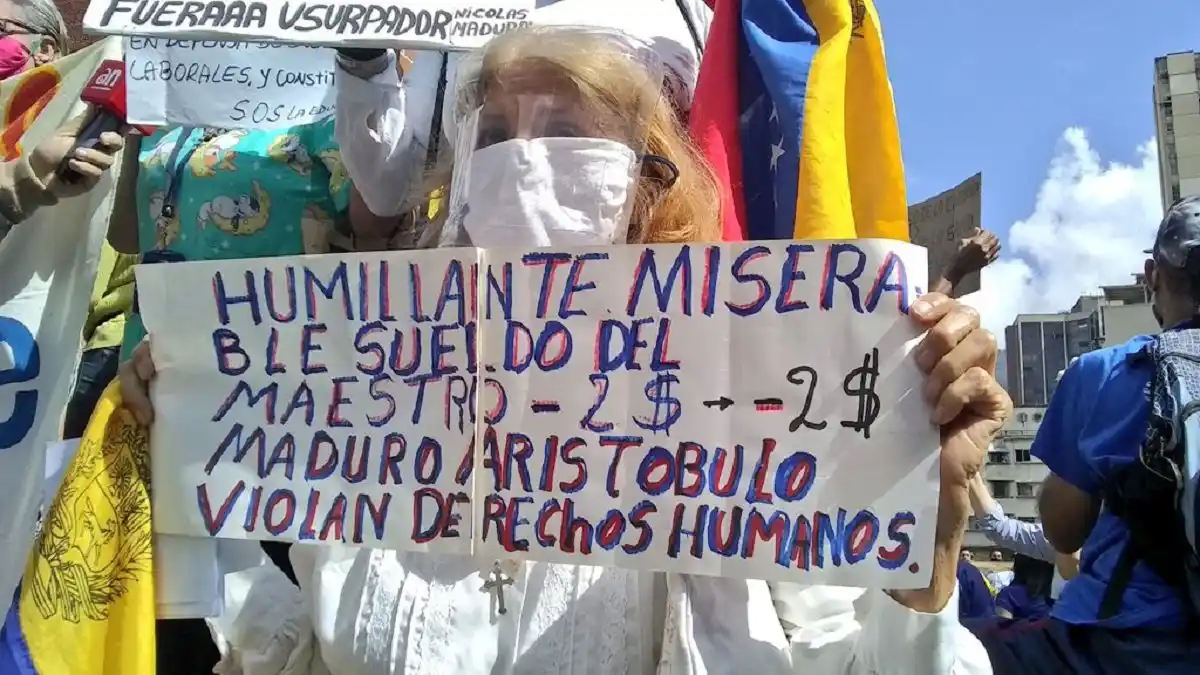 FUERAAA USURPADOR NICOLAS
EN DEFENSA
LABORALES, Y CONSTIT
SOS LA EDU
an
HUMILLANTE MISERA.
BLE SUELDO DEL
MAESTRO - 2 $ → - 2 $
MADURO ARISTOBULO
VIOLAN DERECHOS HUMANOS.
e